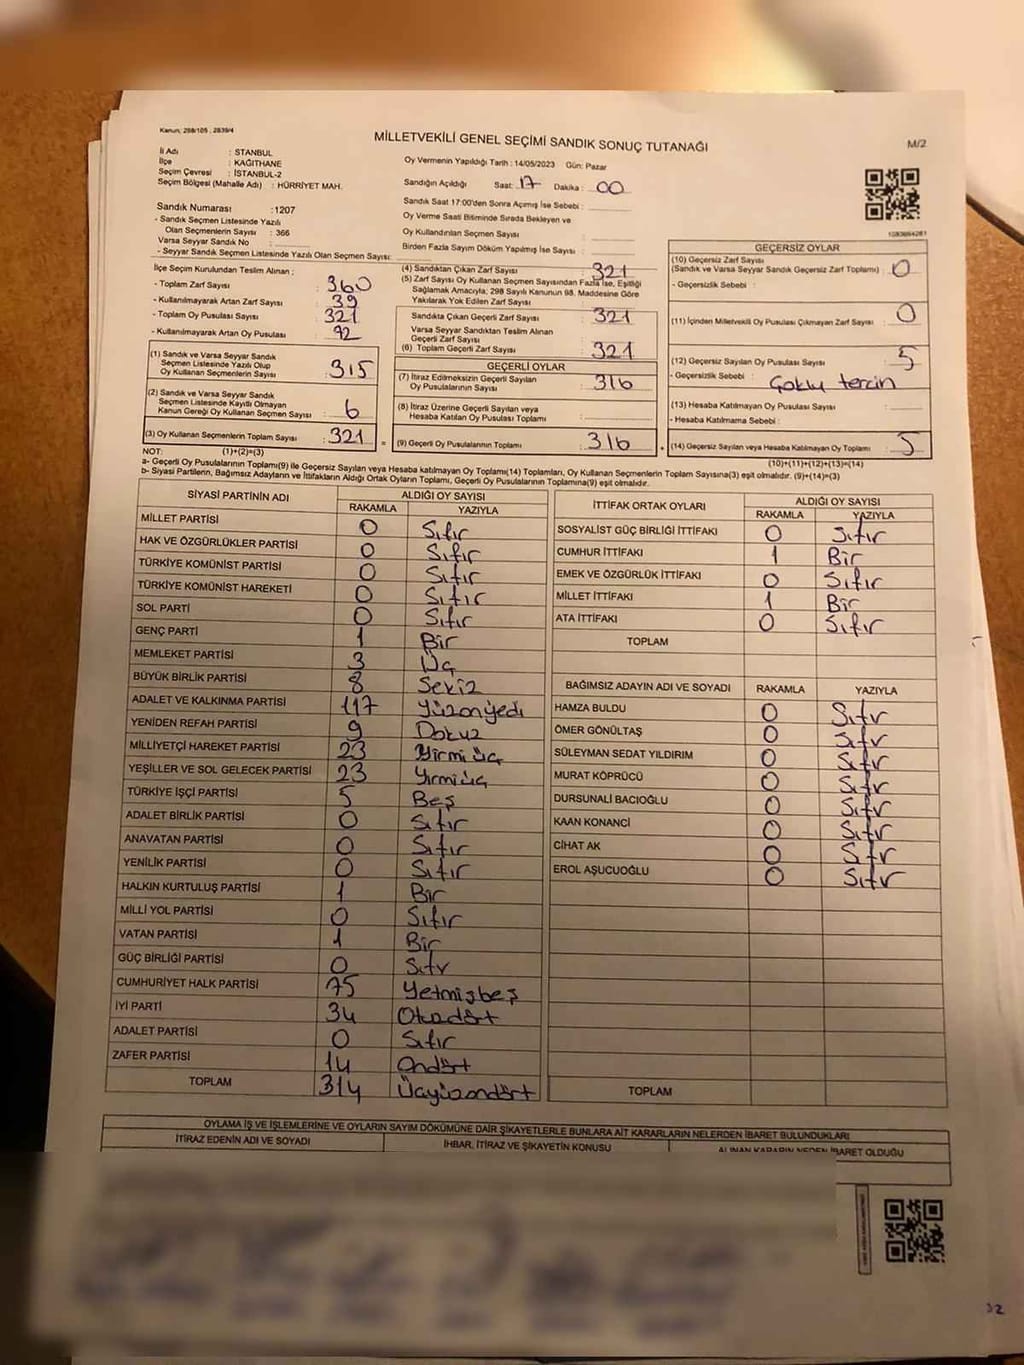 Kanun: 298/105 , 2839/4
MİLLETVEKİLİ GENEL SEÇİMİ SANDIK SONUÇ TUTANAĞI
M/2
İl Adı : STANBUL
İlçe : KAĞITHANE
Seçim Çevresi : İSTANBUL-2
Seçim Bölgesi (Mahalle Adı) : HÜRRİYET MAH.
Oy Vermenin Yapıldığı Tarih : 14/05/2023 Gün: Pazar
Sandığın Açıldığı Saat: 17 Dakika : 00
Sandık Saat 17:00'den Sonra Açımış İse Sebebi :
Oy Verme Saati Bitiminde Sırada Bekleyen ve
Oy Kullandırılan Seçmen Sayısı :
Birden Fazla Sayım Döküm Yapılmış İse Sayısı :
Sandık Numarası :1207
- Sandık Seçmen Listesinde Yazılı
Olan Seçmenlerin Sayısı : 366
Varsa Seyyar Sandık No :
- Seyyar Sandık Seçmen Listesinde Yazılı Olan Seçmen Sayısı:
İlçe Seçim Kurulundan Teslim Alınan ;
- Toplam Zarf Sayısı : 360
- Kullanılmayarak Artan Zarf Sayısı : 39
- Toplam Oy Pusulası Sayısı : 321
- Kullanılmayarak Artan Oy Pusulası : 92
(1) Sandık ve Varsa Seyyar Sandık
Seçmen Listesinde Yazılı Olup
Oy Kullanan Seçmenlerin Sayısı : 315
(2) Sandık ve Varsa Seyyar Sandık
Seçmen Listesinde Kayıtlı Olmayan
Kanun Gereği Oy Kullanan Seçmen Sayısı : 6
(3) Oy Kullanan Seçmenlerin Toplam Sayısı : 321 =
(4) Sandıktan Çıkan Zarf Sayısı : 321
(5) Zarf Sayısı Oy Kullanan Seçmen Sayısından Fazla İse, Eşitliği
Sağlamak Amacıyla; 298 Sayılı Kanunun 98. Maddesine Göre
Yakılarak Yok Edilen Zarf Sayısı :
Sandıkta Çıkan Geçerli Zarf Sayısı : 321
Varsa Seyyar Sandıktan Teslim Alınan
Geçerli Zarf Sayısı :
(6) Toplam Geçerli Zarf Sayısı : 321
GEÇERLİ OYLAR
(7) İtiraz Edilmeksizin Geçerli Sayılan
Oy Pusulalarının Sayısı : 316
(8) İtiraz Üzerine Geçerli Sayılan veya
Hesaba Katılan Oy Pusulası Toplamı :
(9) Geçerli Oy Pusulalarının Toplamı : 316 +
GEÇERSİZ OYLAR
(10) Geçersiz Zarf Sayısı
(Sandık ve Varsa Seyyar Sandık Geçersiz Zarf Toplamı) : 0
- Geçersizlik Sebebi :
(11) İçinden Milletvekili Oy Pusulası Çıkmayan Zarf Sayısı : 0
(12) Geçersiz Sayılan Oy Pusulası Sayısı : 5
- Geçersizlik Sebebi : Çoklu tercih
(13) Hesaba Katılmayan Oy Pusulası Sayısı :
- Hesaba Katılmama Sebebi :
(14) Geçersiz Sayılan veya Hesaba Katılmayan Oy Toplamı : 5
NOT: (1)+(2)=(3) (10)+(11)+(12)+(13)=(14)
a- Geçerli Oy Pusulalarının Toplamı(9) ile Geçersiz Sayılan veya Hesaba katılmayan Oy Toplamı(14) Toplamları, Oy Kullanan Seçmenlerin Toplam Sayısına(3) eşit olmalıdır. (9)+(14)=(3)
b- Siyasi Partilerin, Bağımsız Adayların ve İttifakların Aldığı Ortak Oyların Toplamı, Geçerli Oy Pusulalarının Toplamına(9) eşit olmalıdır.
SİYASİ PARTİNİN ADI ALDIĞI OY SAYISI
RAKAMLA YAZIYLA
MİLLET PARTİSİ 0 Sıfır
HAK VE ÖZGÜRLÜKLER PARTİSİ 0 Sıfır
TÜRKİYE KOMÜNİST PARTİSİ 0 Sıfır
TÜRKİYE KOMÜNİST HAREKETİ 0 Sıfır
SOL PARTİ 0 Sıfır
GENÇ PARTİ 1 Bir
MEMLEKET PARTİSİ 3 Üç
BÜYÜK BİRLİK PARTİSİ 8 Sekiz
ADALET VE KALKINMA PARTİSİ 117 Yüzonyedi
YENİDEN REFAH PARTİSİ 9 Dokuz
MİLLİYETÇİ HAREKET PARTİSİ 23 Yirmiüç
YEŞİLLER VE SOL GELECEK PARTİSİ 23 Yirmiüç
TÜRKİYE İŞÇİ PARTİSİ 5 Beş
ADALET BİRLİK PARTİSİ 0 Sıfır
ANAVATAN PARTİSİ 0 Sıfır
YENİLİK PARTİSİ 0 Sıfır
HALKIN KURTULUŞ PARTİSİ 1 Bir
MİLLİ YOL PARTİSİ 0 Sıfır
VATAN PARTİSİ 1 Bir
GÜÇ BİRLİĞİ PARTİSİ 0 Sıfır
CUMHURİYET HALK PARTİSİ 75 Yetmişbeş
İYİ PARTİ 34 Otuzdört
ADALET PARTİSİ 0 Sıfır
ZAFER PARTİSİ 14 Ondört
TOPLAM 314 Üçyüzondört
İTTİFAK ORTAK OYLARI ALDIĞI OY SAYISI
RAKAMLA YAZIYLA
SOSYALİST GÜÇ BİRLİĞİ İTTİFAKI 0 Sıfır
CUMHUR İTTİFAKI 1 Bir
EMEK VE ÖZGÜRLÜK İTTİFAKI 0 Sıfır
MİLLET İTTİFAKI 1 Bir
ATA İTTİFAKI 0 Sıfır
TOPLAM
BAĞIMSIZ ADAYIN ADI VE SOYADI RAKAMLA YAZIYLA
HAMZA BULDU 0 Sıfır
ÖMER GÖNÜLTAŞ 0 Sıfır
SÜLEYMAN SEDAT YILDIRIM 0 Sıfır
MURAT KÖPRÜCÜ 0 Sıfır
DURSUNALİ BACIOĞLU 0 Sıfır
KAAN KONANCİ 0 Sıfır
CİHAT AK 0 Sıfır
EROL AŞUCUOĞLU 0 Sıfır
TOPLAM
OYLAMA İŞ VE İŞLEMLERİNE VE OYLARIN SAYIM DÖKÜMÜNE DAİR ŞİKAYETLERLE BUNLARA AİT KARARLARIN NELERDEN İBARET BULUNDUKLARI
İTİRAZ EDENİN ADI VE SOYADI İHBAR, İTİRAZ VE ŞİKAYETİN KONUSU ALINAN KARARIN NEDEN İBARET OLDUĞU
32